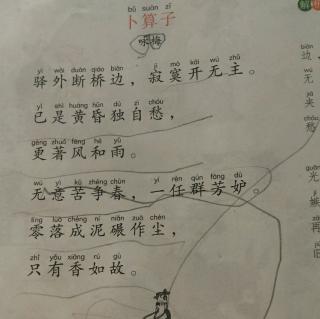 bǔ suàn zǐ
卜算子
咏梅
yì wài duàn qiáo biān jì mò kāi wú zhǔ
驿外断桥边，寂寞开无主。
yǐ shì huáng hūn dú zì chóu
已是黄昏独自愁，
gèng zhuó fēng hé yǔ
更著风和雨。
wú yì kǔ zhēng chūn yí rèn qún fāng dù
无意苦争春，一任群芳妒。
líng luò chéng ní niǎn zuò chén
零落成泥碾作尘，
zhǐ yǒu xiāng rú gù
只有香如故。
解
边
无
夹
愁
光
嫉
再
旧